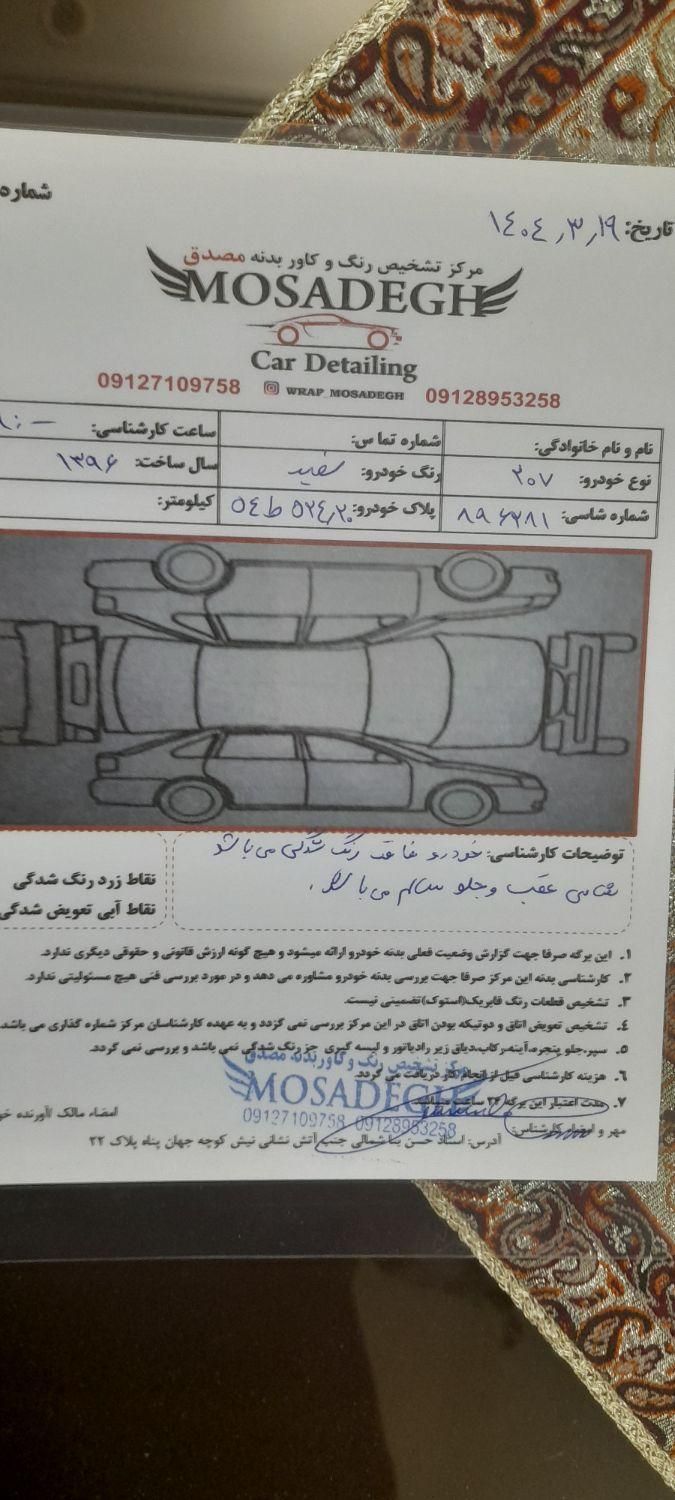 شماره
تاریخ: ۱۴۰۴٫۳٫۱۹
مرکز تشخیص رنگ و کاور بدنه مصدق
MOSADEGH
Car Detailing
09127109758 WRAP_MOSADEGH 09128953258
نام و نام خانوادگی: شماره تماس: ساعت کارشناسی:
نوع خودرو: ۲۰۷ رنگ خودرو: سفید سال ساخت: ۱۳۹۶
شماره شاسی: ۸۹۶۲۸۱ پلاک خودرو: کیلومتر:
توضیحات کارشناسی: خودرو فاقد رنگ شدگی می باشد
عقب و جلو سالم می باشد.
نقاط زرد رنگ شدگی
نقاط آبی تعویض شدگی
۱. این برگه صرفا جهت گزارش وضعیت فعلی بدنه خودرو ارائه میشود و هیچ گونه ارزش قانونی و حقوقی دیگری ندارد.
۲. کارشناسی بدنه این مرکز صرفا جهت بررسی بدنه خودرو مشاوره می دهد و در مورد بررسی فنی هیچ مسئولیتی ندارد.
۳. تشخیص قطعات رنگ فابریک(استوک)تضمینی نیست.
۴. تشخیص تعویض اتاق و دوتیکه بودن اتاق در این مرکز بررسی نمی گردد و به عهده کارشناسان مرکز شماره گذاری می باشد.
۵. سپر،جلو پنجره،آینه،رکاب،دیاق زیر رادیاتور و لیسه گیری جز رنگ شدگی نمی باشد و بررسی نمی گردد.
۶. هزینه کارشناسی قبل از انجام کار دریافت می گردد.
۷. مدت اعتبار این برگه ۲۴ ساعت میباشد.
مرکز تشخیص رنگ و کاور بدنه مصدق
MOSADEGH
09127109758 09128953258
مهر و امضاء کارشناس: امضاء مالک /آورنده
آدرس: استاد حسن بنا شمالی جنب آتش نشانی نبش کوچه جهان پناه پلاک ۲۲